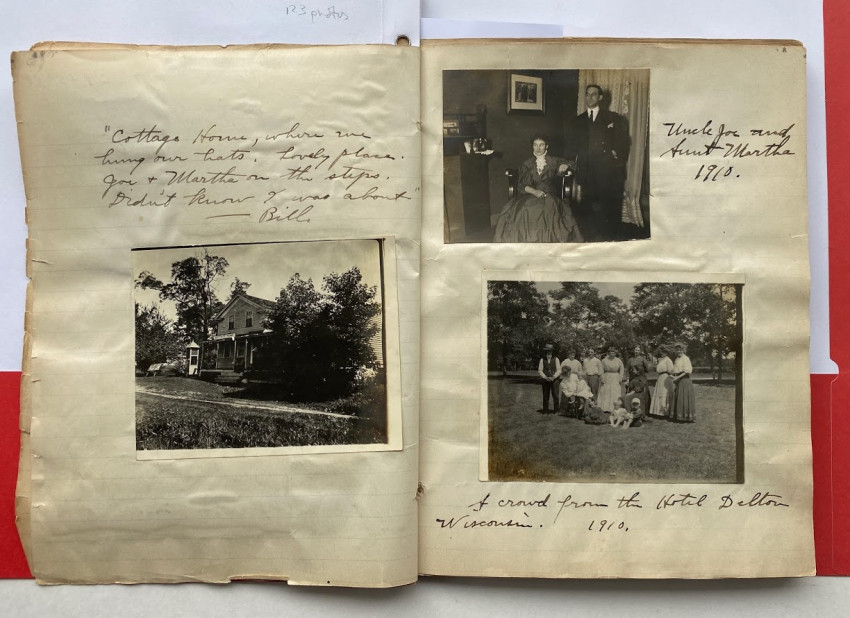 123 photos
"Cottage Home, where we
hung our hats. Lovely place.
Joe + Martha on the steps.
Didn't know I was about"
— Bill.
Uncle Joe and
Aunt Martha
1910.
A crowd from the Hotel Delton
Wisconsin. 1910.